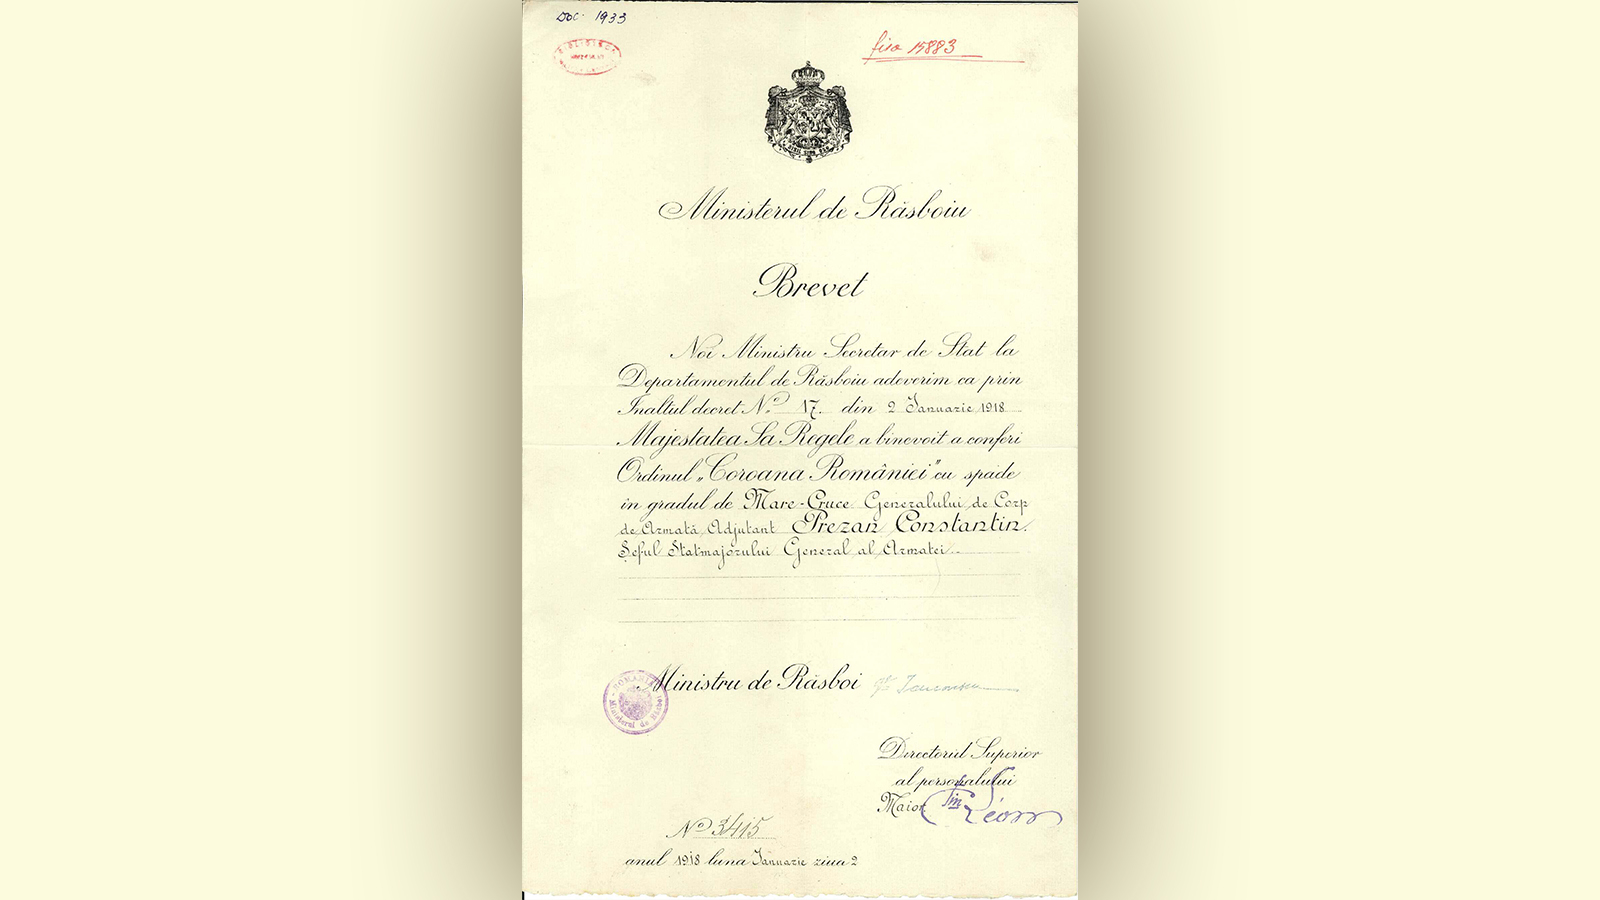 Doc. 1933
fisa 15883
NIHIL SINE DEO
Ministerul de Răsboiu
Brevet
Noi Ministru Secretar de Stat la
Departamentul de Răsboiu adeverim ca prin
Inaltul decret No. 17. din 2 Ianuarie 1918
Majestatea Sa Regele a binevoit a conferi
Ordinul „Coroana României” cu spade
in gradul de Mare-Cruce Generalului de Corp
de Armată, Adjutant Prezan Constantin.
Șeful Statmajorului General al Armatei.
Ministru de Răsboi
ROMANIA
Ministerul de Răsboi
Directorul Superior
al personalului
Maior
No 3415
anul 1918 luna Ianuarie ziua 2